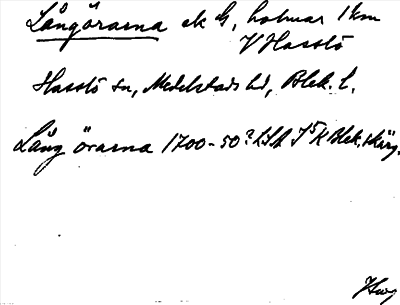 Långörarna ek G, holmar 1 km
V Hasslö
Hasslö sn, Medelstads hd, Blek. l.
Lång örarna 1700-50? LSA J⁵ K Blek. skärg.